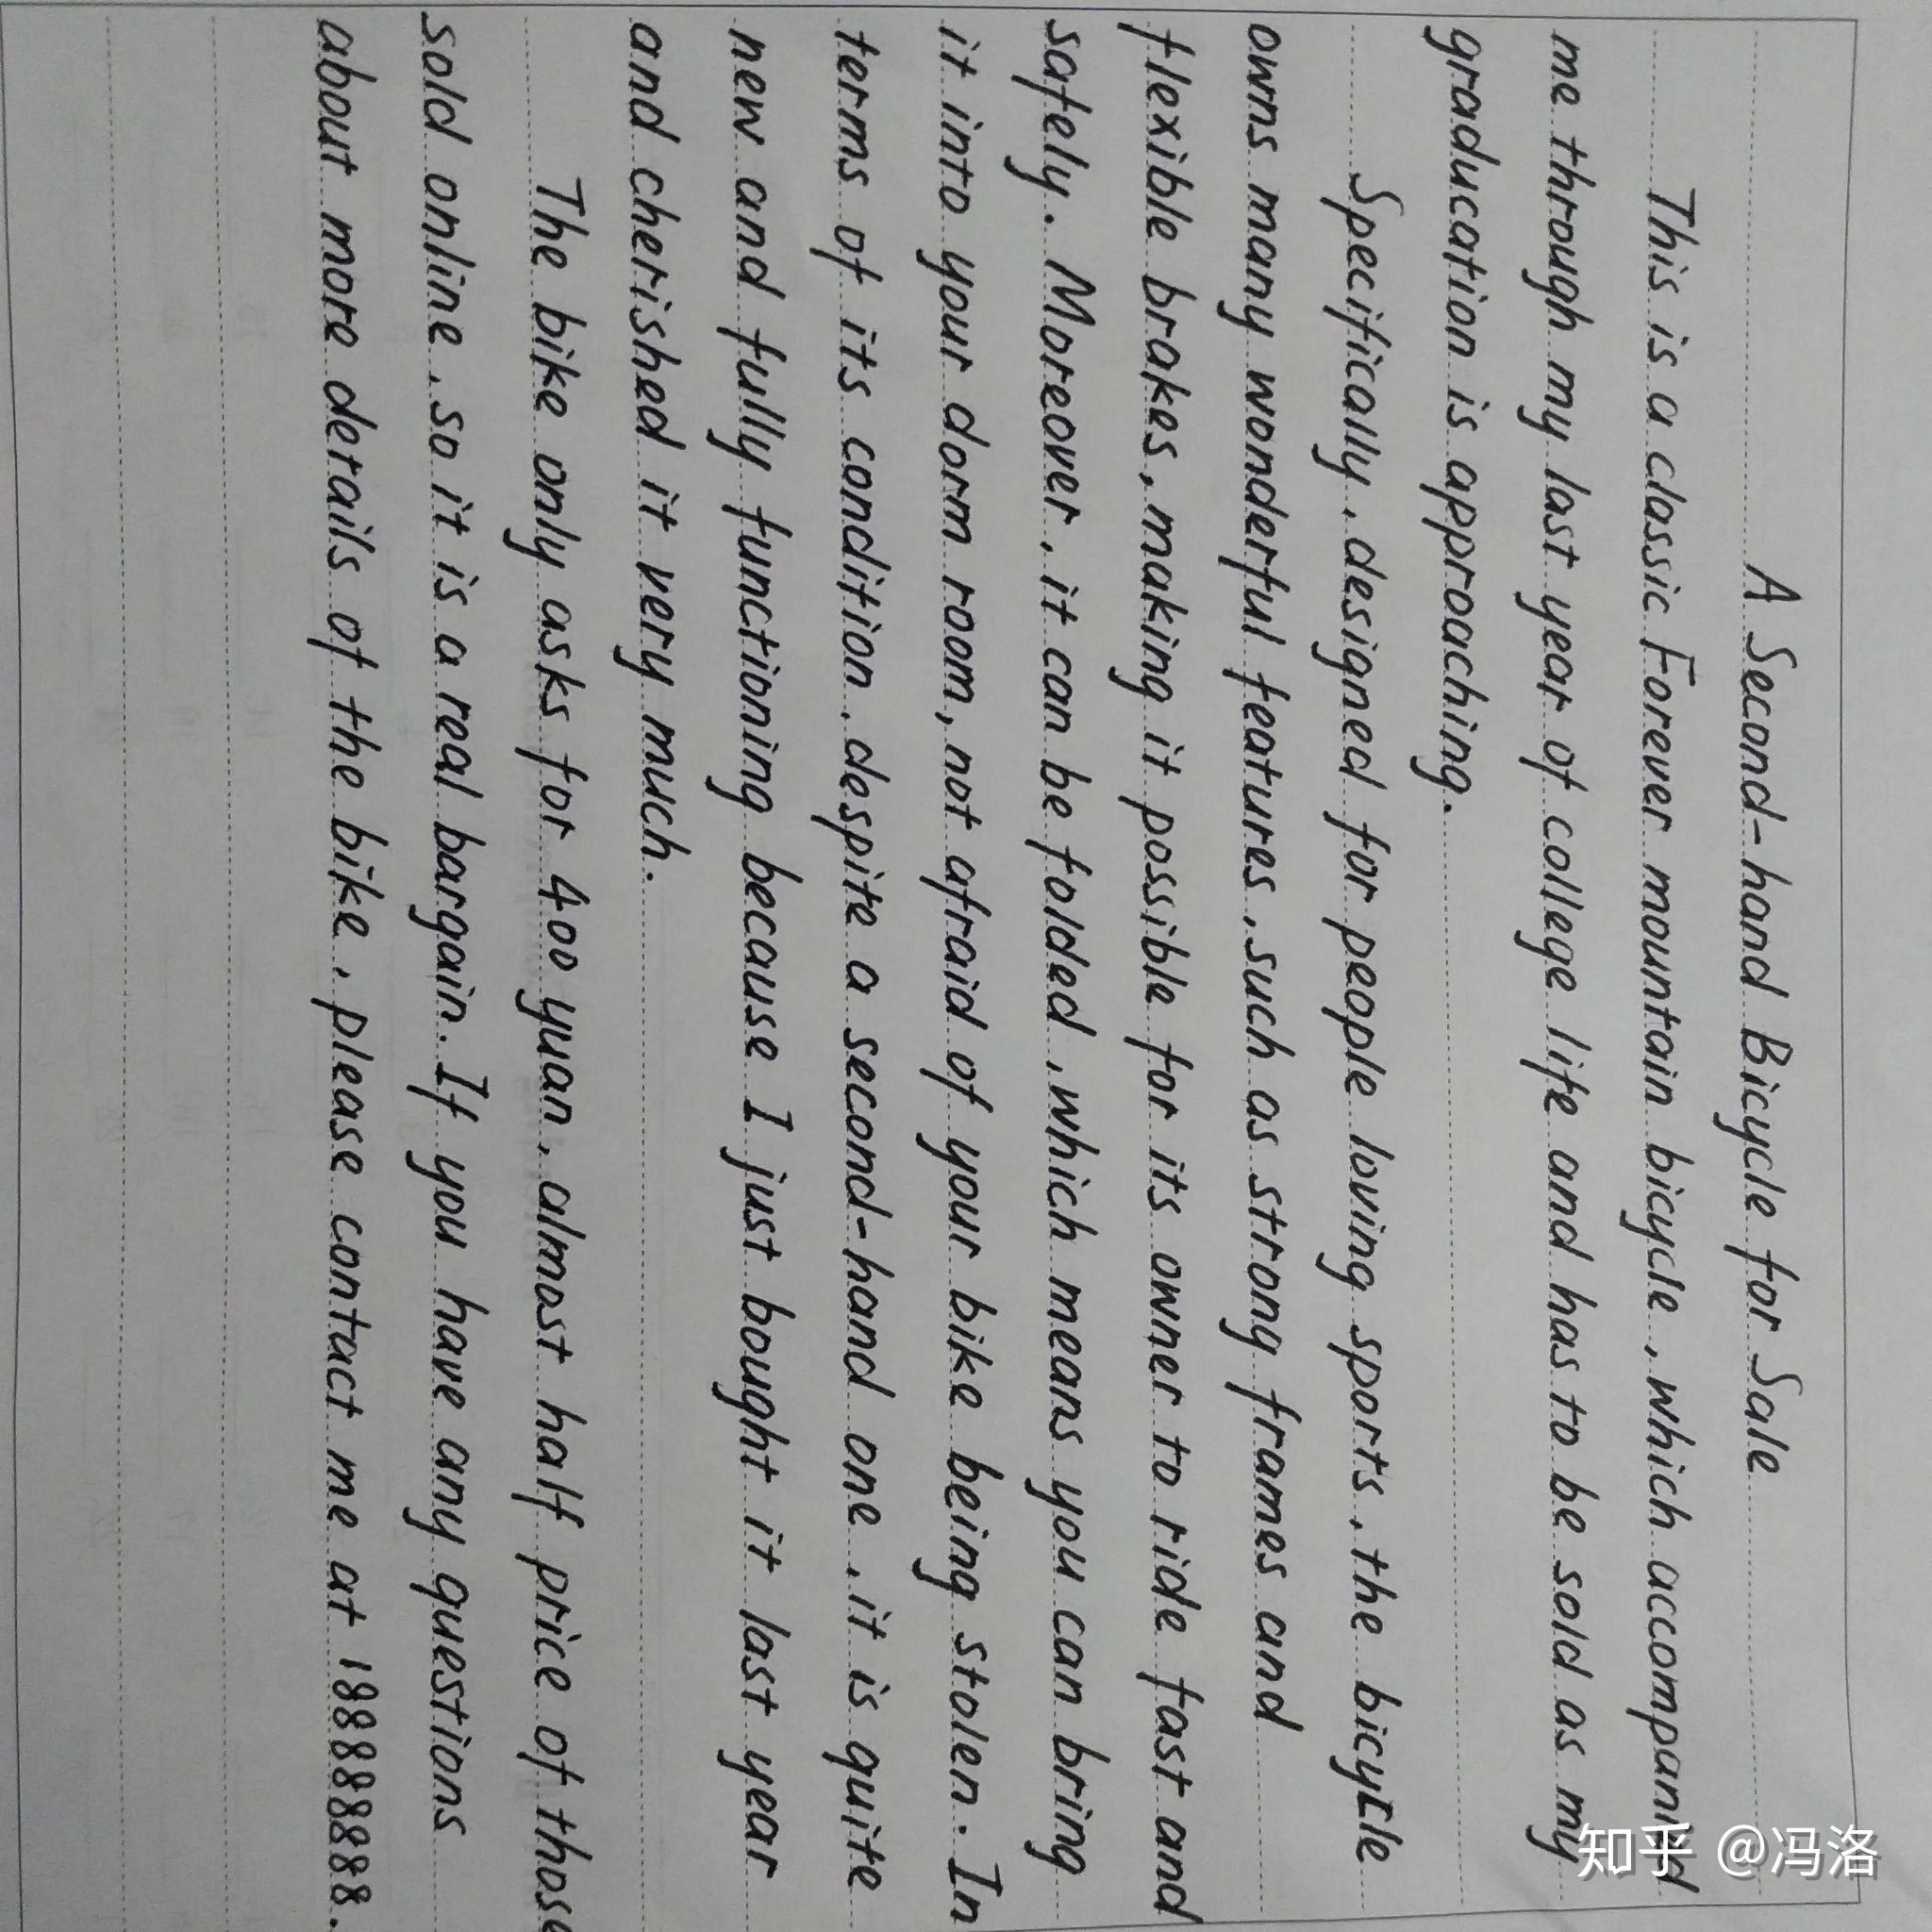 A Second-hand Bicycle for Sale
This is a classic Forever mountain bicycle, which accompanied
me through my last year of college life and has to be sold as my
graducation is approaching.
Specifically, designed for people loving sports, the bicycle
owns many wonderful features, such as strong frames and
flexible brakes, making it possible for its owner to ride fast and
safely. Moreover, it can be folded, which means you can bring
it into your dorm room, not afraid of your bike being stolen. In
terms of its condition, despite a second-hand one, it is quite
new and fully functioning because I just bought it last year
and cherished it very much.
The bike only asks for 400 yuan, almost half price of those
sold online, so it is a real bargain. If you have any questions
about more details of the bike, please contact me at 188888888.
知乎 @冯洛